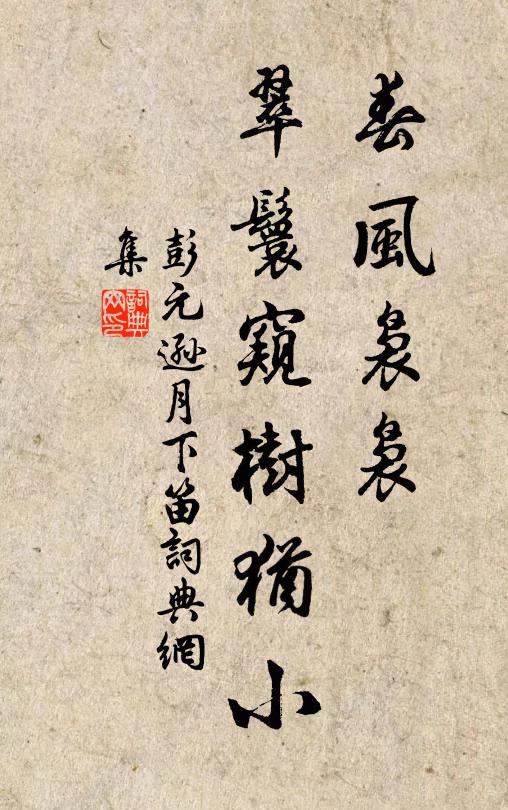 春風裊裊
翠鬟窺樹猶小
彭元遜月下笛詞典網
集
詞典網印